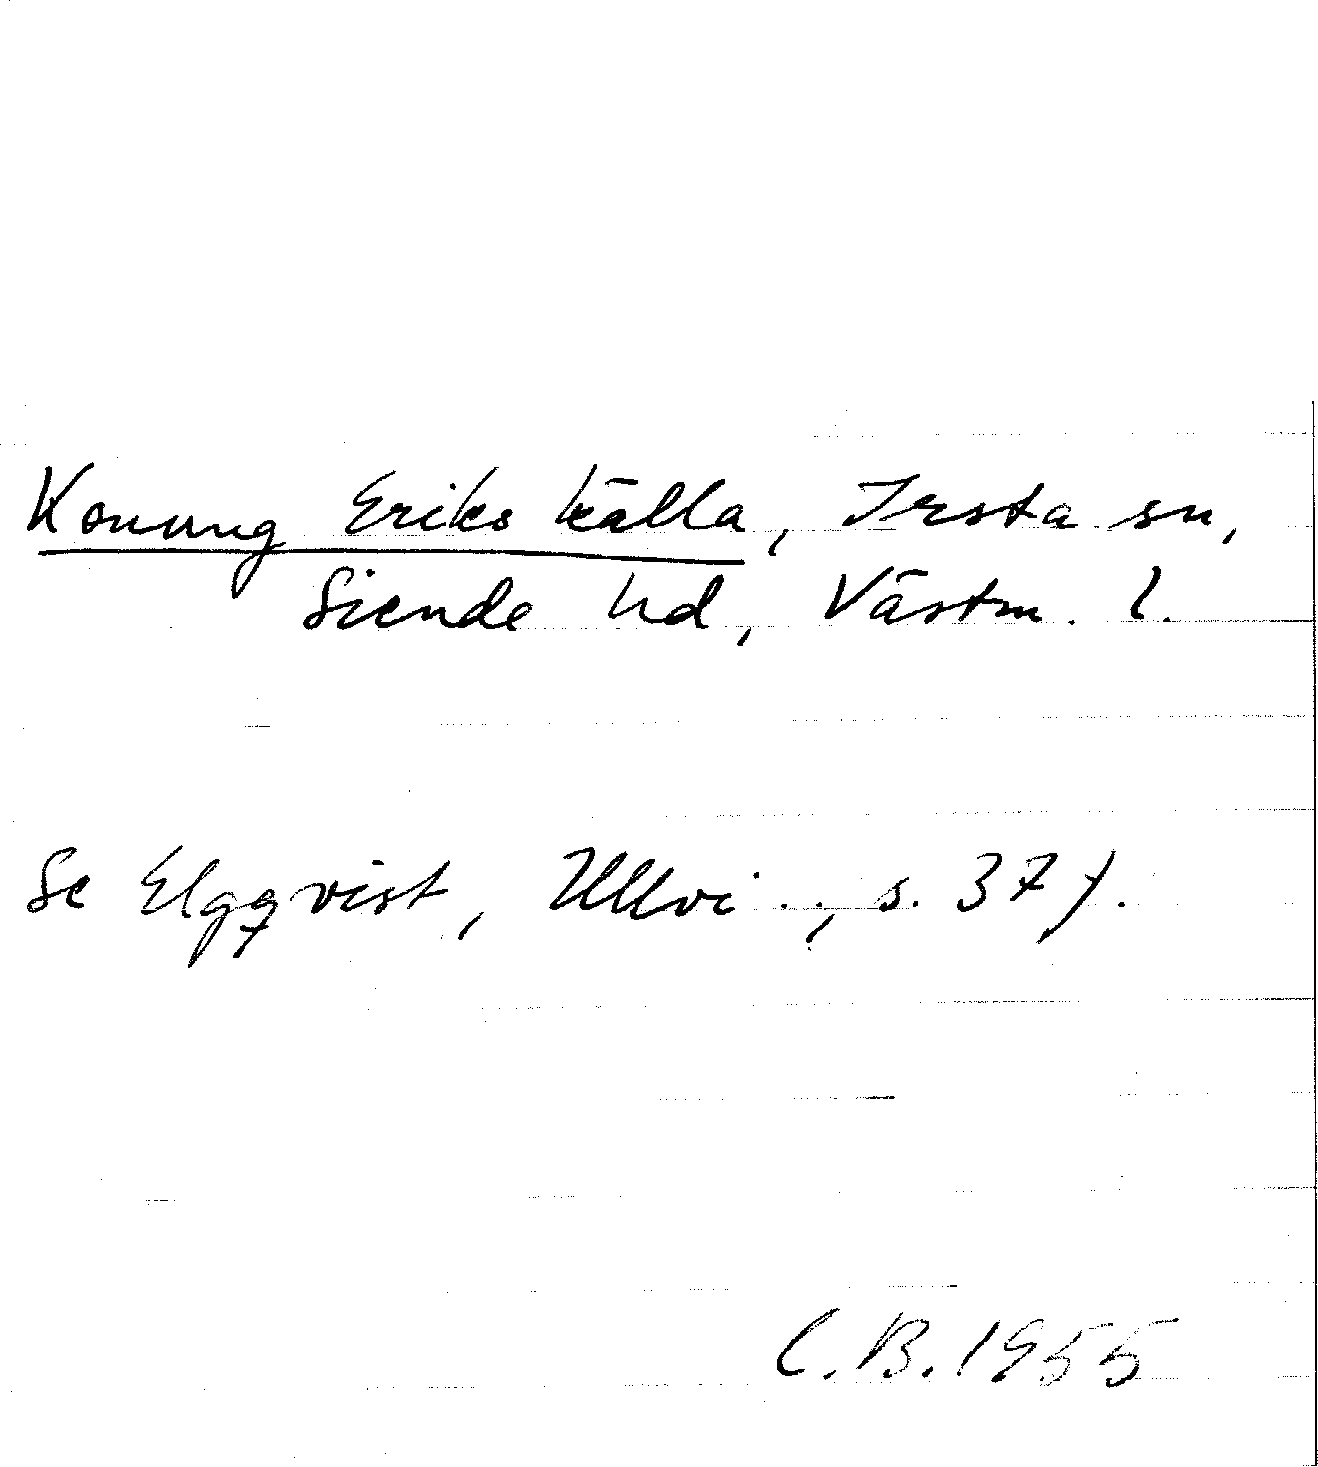 Konung Eriks källa, Irsta sn,
Siende hd, Västm. l.
Se Elgqvist, Ullvi .., s. 37 f.
C.B. 1955